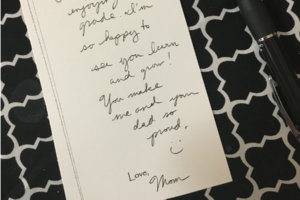 enjoying
grade. I'm
so happy to
see you learn
and grow!
You make
me and your
dad so
proud.
Love, Mom